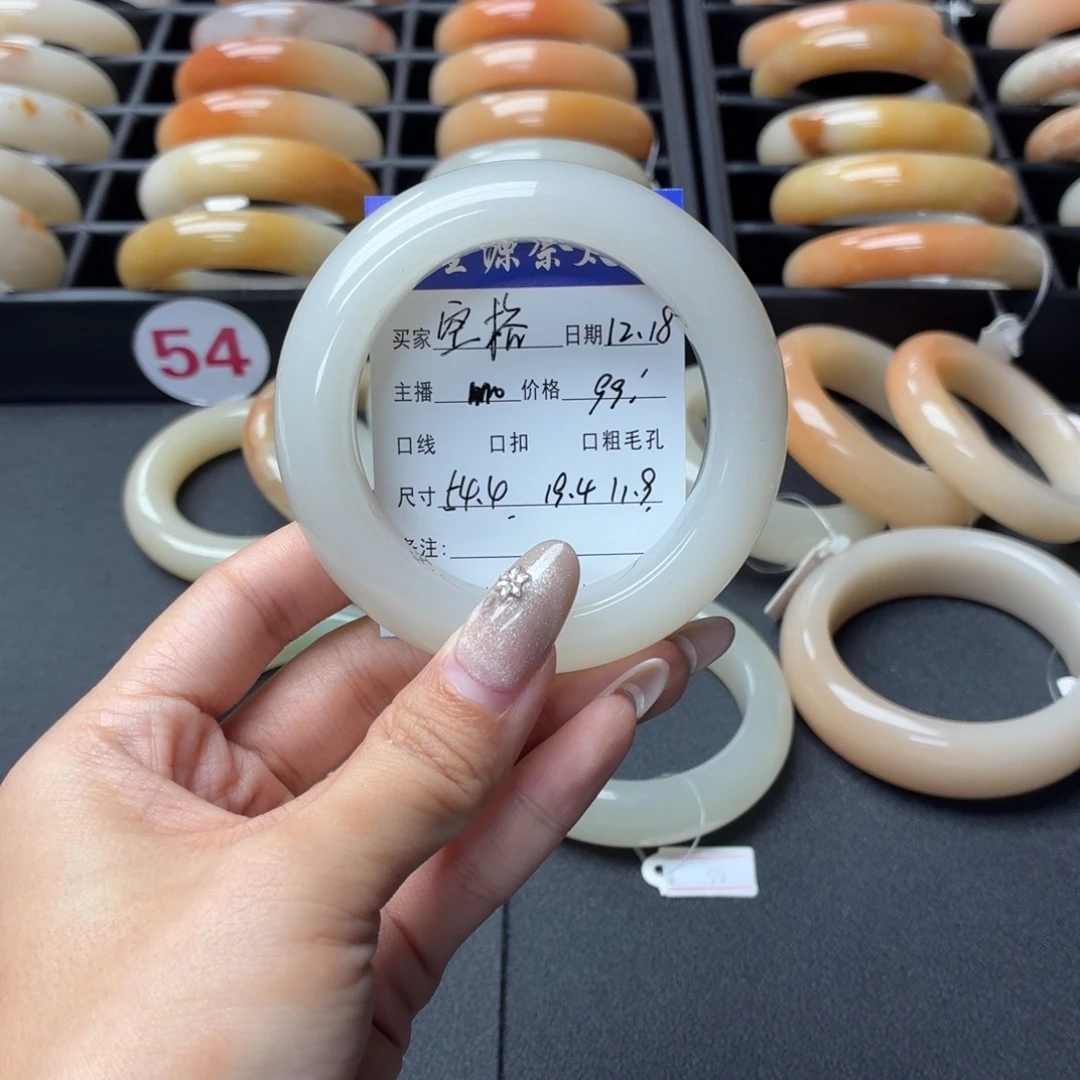 54
买家 空格 日期 12.18
主播 价格 99.
口线 口扣 口粗毛孔
尺寸 54.4 19.4 11.9
备注: